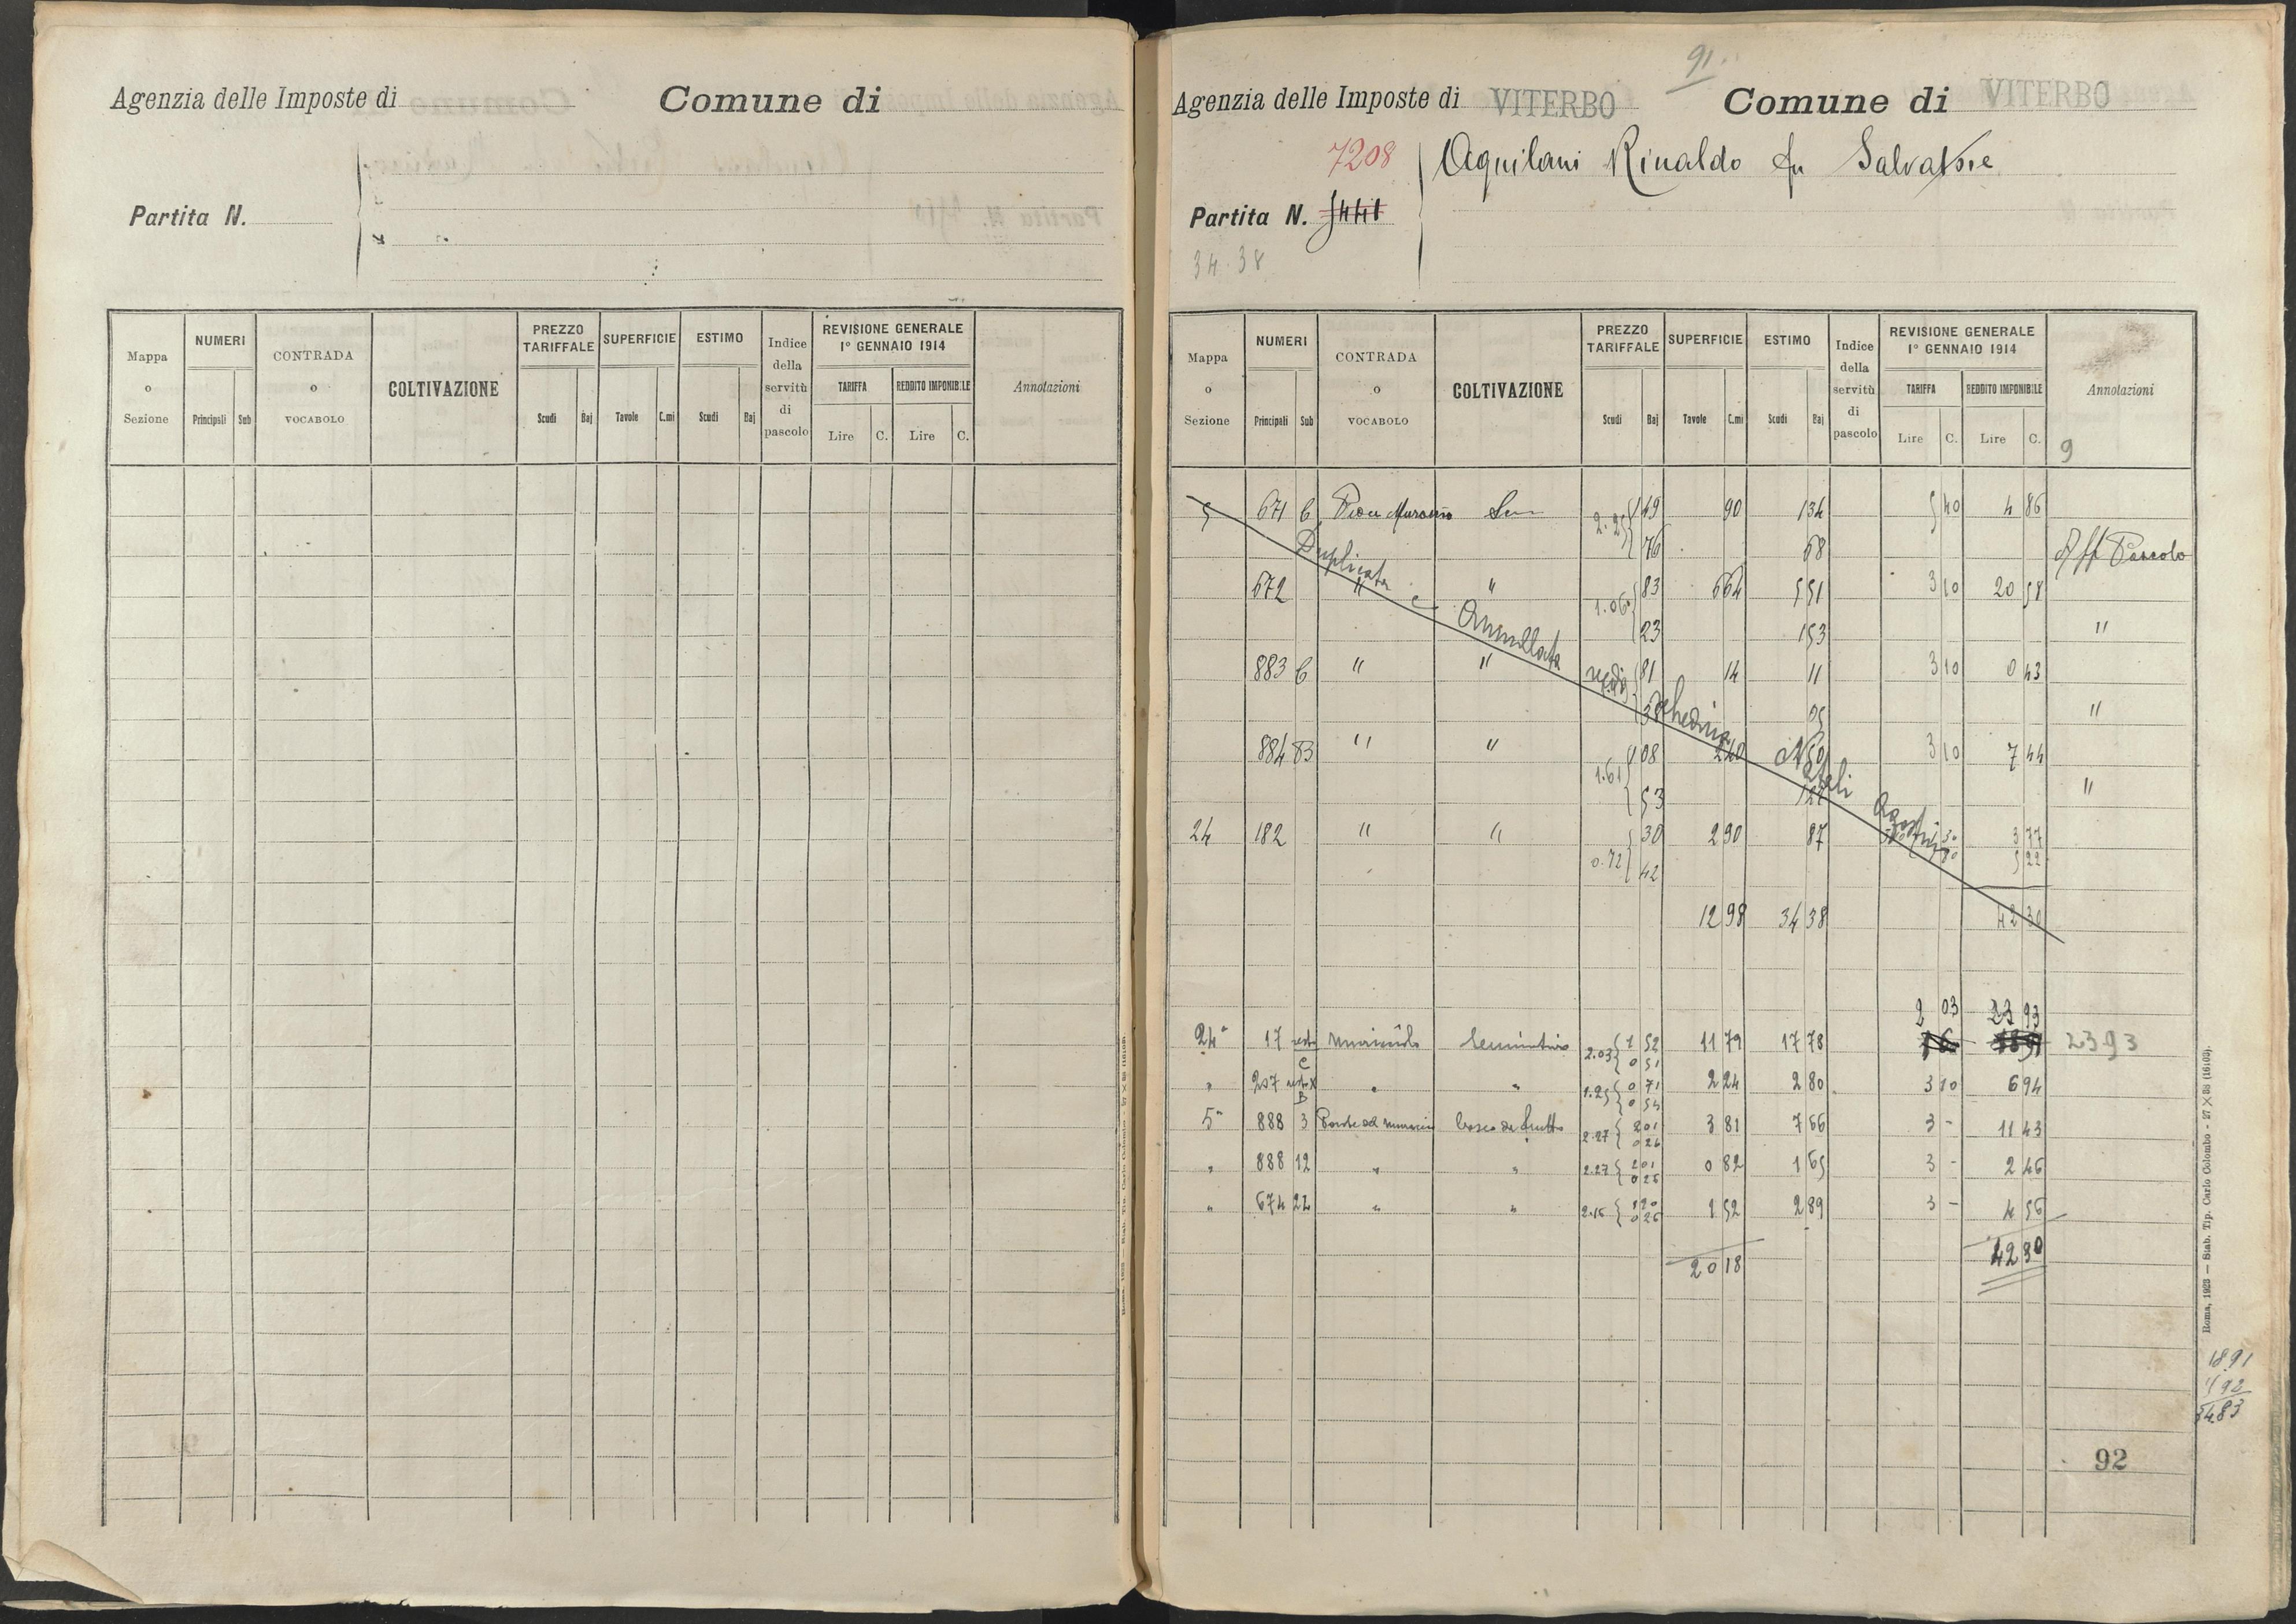 Agenzia delle Imposte di Comune di
Partita N.
Mappa o Sezione NUMERI Principali Sub CONTRADA o VOCABOLO COLTIVAZIONE PREZZO TARIFFALE Scudi Baj SUPERFICIE Tavole C.mi ESTIMO Scudi Baj Indice della servitù di pascolo REVISIONE GENERALE 1° GENNAIO 1914 TARIFFA Lire C. REDDITO IMPONIBILE Lire C. Annotazioni
91
Agenzia delle Imposte di VITERBO Comune di VITERBO
7208 Aquilani Rinaldo fu Salvatore
Partita N. 5441
34.38
Mappa o Sezione NUMERI Principali Sub CONTRADA o VOCABOLO COLTIVAZIONE PREZZO TARIFFALE Scudi Baj SUPERFICIE Tavole C.mi ESTIMO Scudi Baj Indice della servitù di pascolo REVISIONE GENERALE 1° GENNAIO 1914 TARIFFA Lire C. REDDITO IMPONIBILE Lire C. Annotazioni
9
5 671 b Sem 2.25 1 49 90 1 34 5 40 4 86
76 68 Aff Pascolo
672 " " 1.06 83 6 64 5 51 3 10 20 58
23 1 53 "
883 b " " 81 14 11 3 10 0 43
38 05 "
884 B " " 1.61 1 08 2 40 3 10 7 44
53 127 "
24 182 " " 0.72 30 2 90 87 3 77
42 5 22
Duplicata e Annullata vedi scheda Natali
12 98 34 38 42 30
2 03 23 93
24" 17 resto 2.03 1 52 0 51 11 79 17 78 23 93
C
" 207 resto " " 1.25 0 71 0 54 2 24 2 80 3 10 6 94
B
5" 888 3 bosco da frutto 2.27 2 01 0 26 3 81 7 66 3 - 11 43
" 888 12 " " 2.27 2 01 0 26 0 82 1 65 3 - 2 46
" 674 22 " " 2.16 1 90 0 26 1 52 2 89 3 - 4 56
20 18
Roma, 1923 — Stab. Tip. Carlo Colombo - 27 X 38 (16103).
1891
92